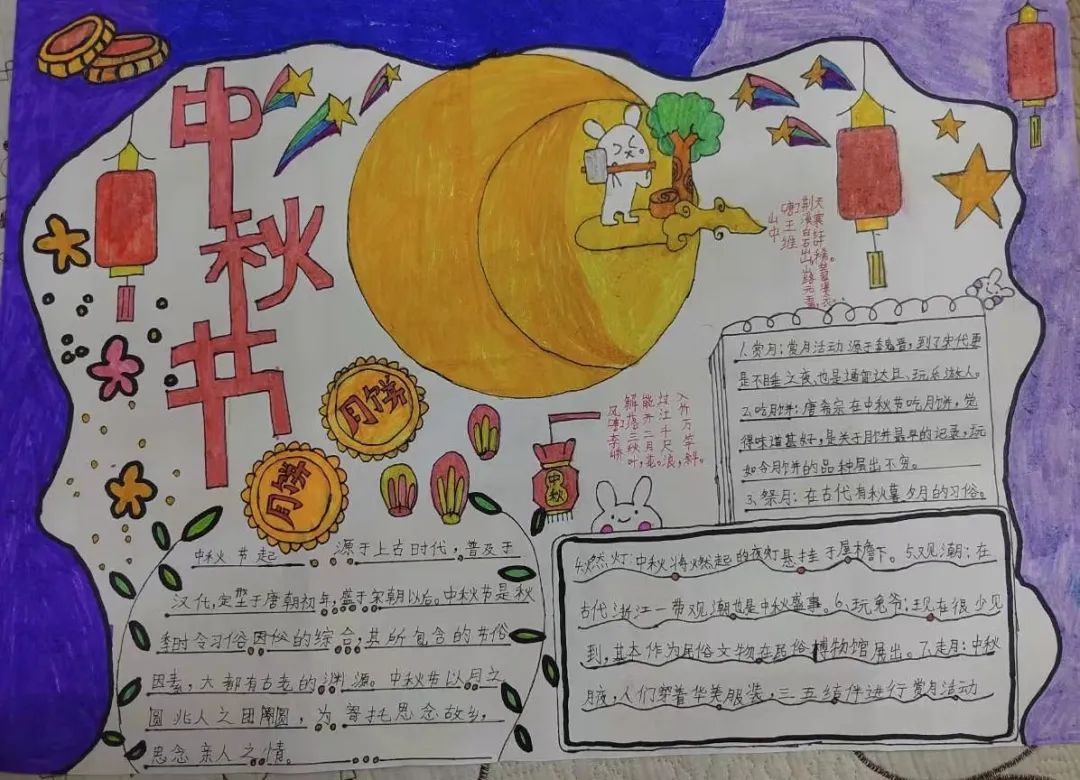 中秋节
月饼
月饼
中秋
山中
唐王维
荆溪白石出,
天寒红
山路元
风
唐李峤
解落三秋叶,
能开二月花。
过江千尺浪,
入竹万竿斜。
1.赏月:赏月活动源于魏晋,到了宋代更
是不睡之夜,也是通宵达旦,玩乐游人。
2.吃月饼:唐僖宗在中秋节吃月饼,觉
得味道甚好,是关于月饼最早的记录,玩
如今月饼的品种层出不穷。
3.祭月:在古代有秋暮夕月的习俗。
4.燃灯:中秋将燃起的夜灯悬挂于屋檐下。5.观潮:在
古代浙江一带观潮也是中秋盛事。6.玩兔爷:现在很少见
到,基本作为民俗文物在民俗博物馆展出。7.走月:中秋
月夜,人们穿着华美服装,三五结伴进行赏月活动
中秋节起 源于上古时代,普及于
汉代,定型于唐朝初年,盛于宋朝以后。中秋节是秋
季时令习俗因俗的综合,其所包含的节俗
因素,大都有古老的渊源。中秋节以月之
圆兆人之团圆,为寄托思念故乡,
思念亲人之情。